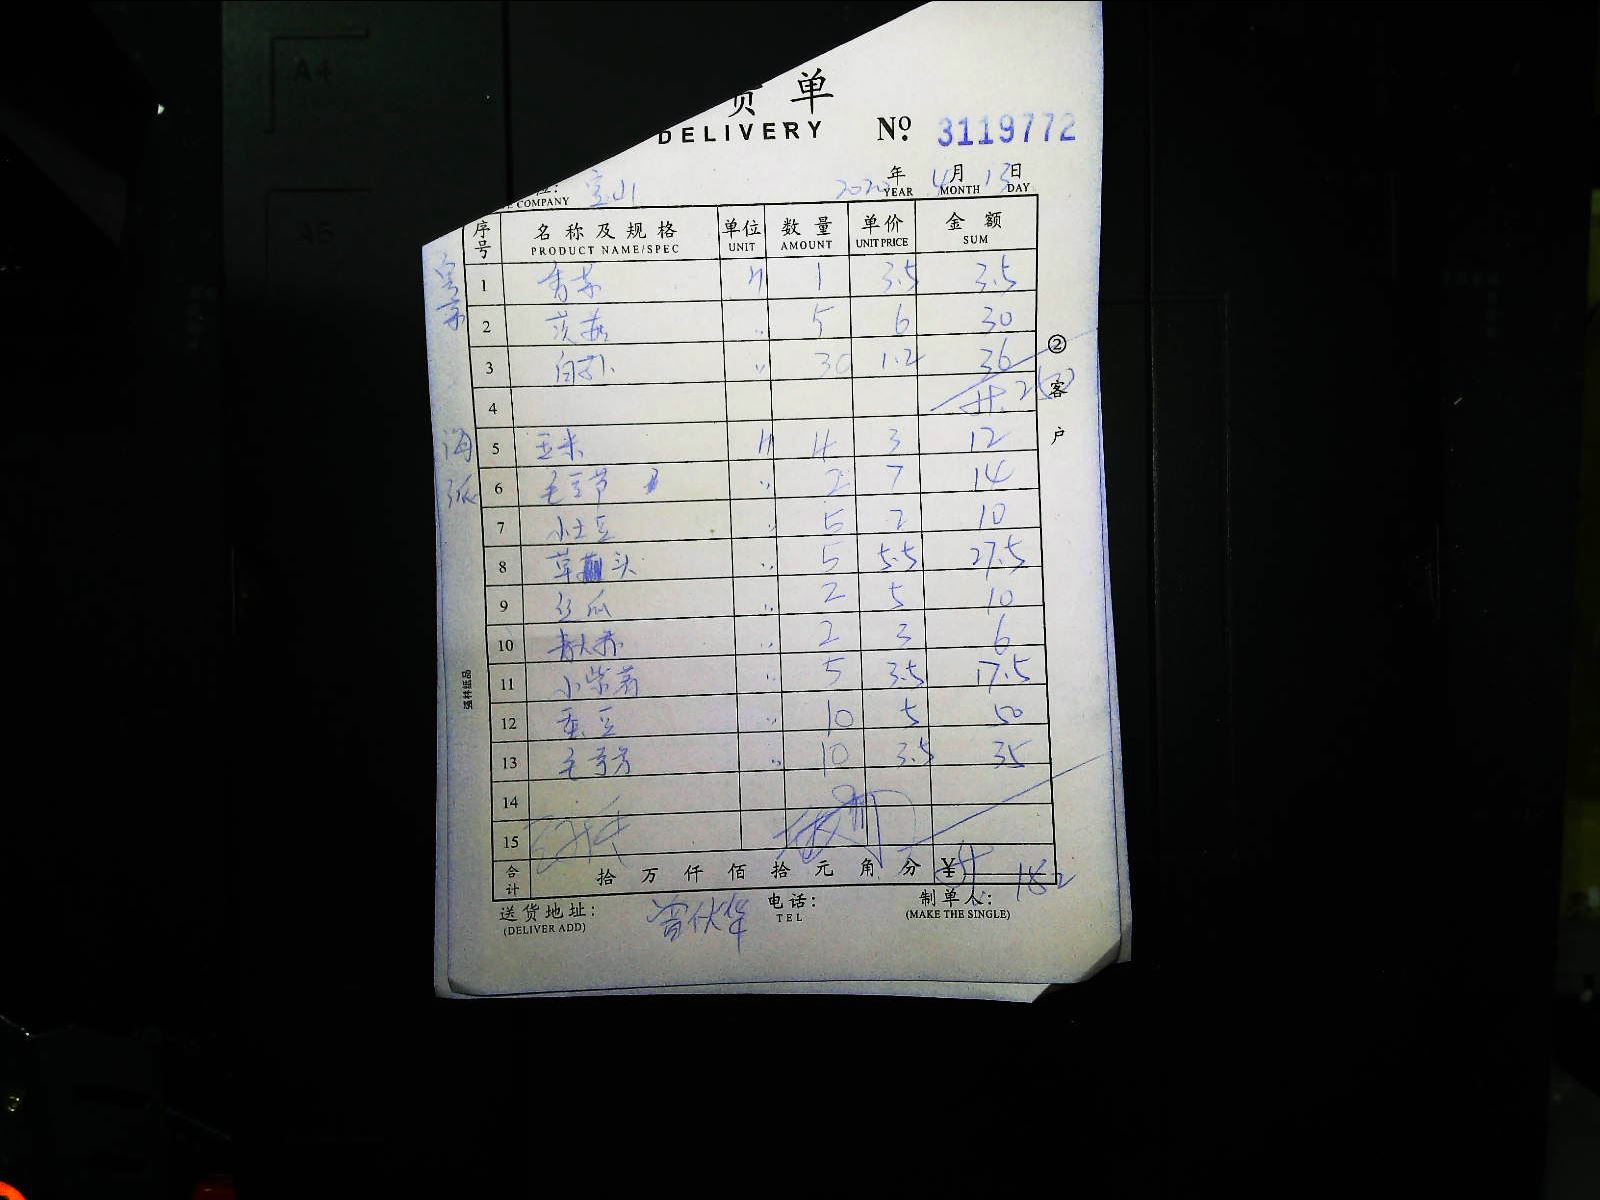 A4
A5
货 单
DELIVERY Nº 3119772
宝山 2020年 4月 13日
COMPANY YEAR MONTH DAY
序号 名称及规格 单位 数量 单价 金额
PRODUCT NAME/SPEC UNIT AMOUNT UNIT PRICE SUM
1 香菜 斤 1 3.5 3.5
2 〃 5 6 30
3 〃 30 1.2 36
4
海派
5 玉米 斤 4 3 12
6 毛豆节 〃 2 7 14
7 小土豆 〃 5 2 10
8 草头 〃 5 5.5 27.5
9 丝瓜 〃 2 5 10
10 〃 2 3 6
11 〃 5 3.5 17.5
12 蚕豆 〃 10 5 50
13 〃 10 3.5 35
14
15
合计 拾 万 仟 佰 拾 元 角 分 ¥ 182
送货地址: 电话: 制单人:
(DELIVER ADD) TEL (MAKE THE SINGLE)
②客户
强林纸品